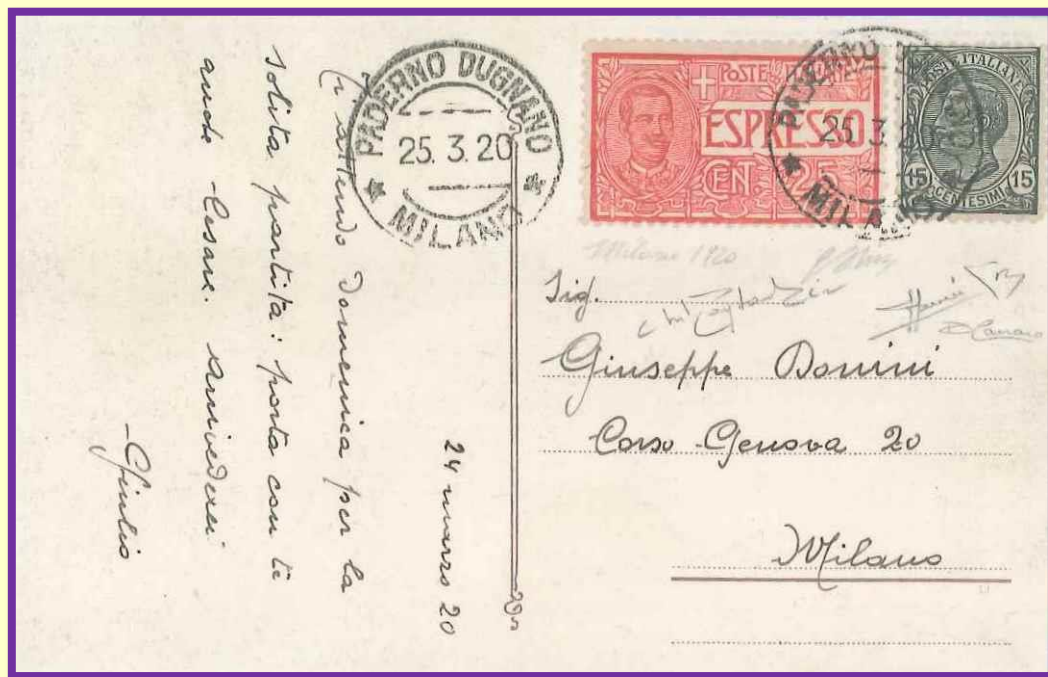 PADERNO DUGNANO
25. 3. 20
MILANO
POSTE ITALIANE
ESPRESSO
CENT. 25
PADERNO DUGNANO
25 3. 20
MILANO
POSTE ITALIANE
15 15
CENTESIMI
Milano 1920
Sig.
Giuseppe Bonini
Corso Genova 20
Milano
24 marzo 20
Ti attendo Domenica per la
solita partita: porta con te
anche Cesare. Arrivederci
-Giulio